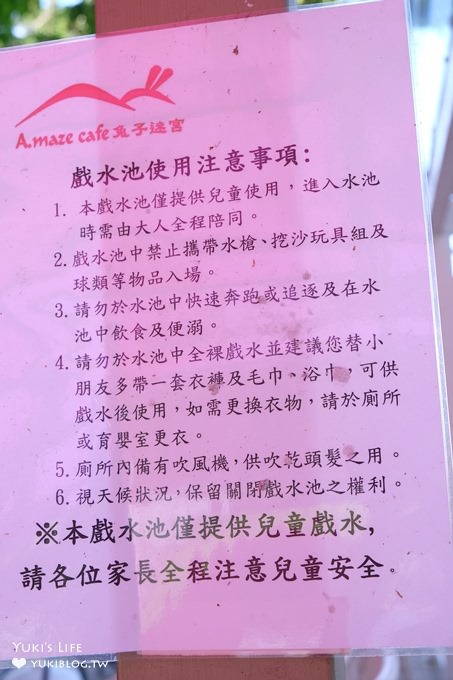 A.maze cafe 兔子迷宮
戲水池使用注意事項：
1. 本戲水池僅提供兒童使用，進入水池
時需由大人全程陪同。
2. 戲水池中禁止攜帶水槍、挖沙玩具組及
球類等物品入場。
3. 請勿於水池中快速奔跑或追逐及在水
池中飲食及便溺。
4. 請勿於水池中全裸戲水並建議您替小
朋友多帶一套衣褲及毛巾、浴巾，可供
戲水後使用，如需更換衣物，請於廁所
或育嬰室更衣。
5. 廁所內備有吹風機，供吹乾頭髮之用。
6. 視天候狀況，保留關閉戲水池之權利。
※本戲水池僅提供兒童戲水，
請各位家長全程注意兒童安全。
YUKI'S LIFE
YUKIBLOG.TW